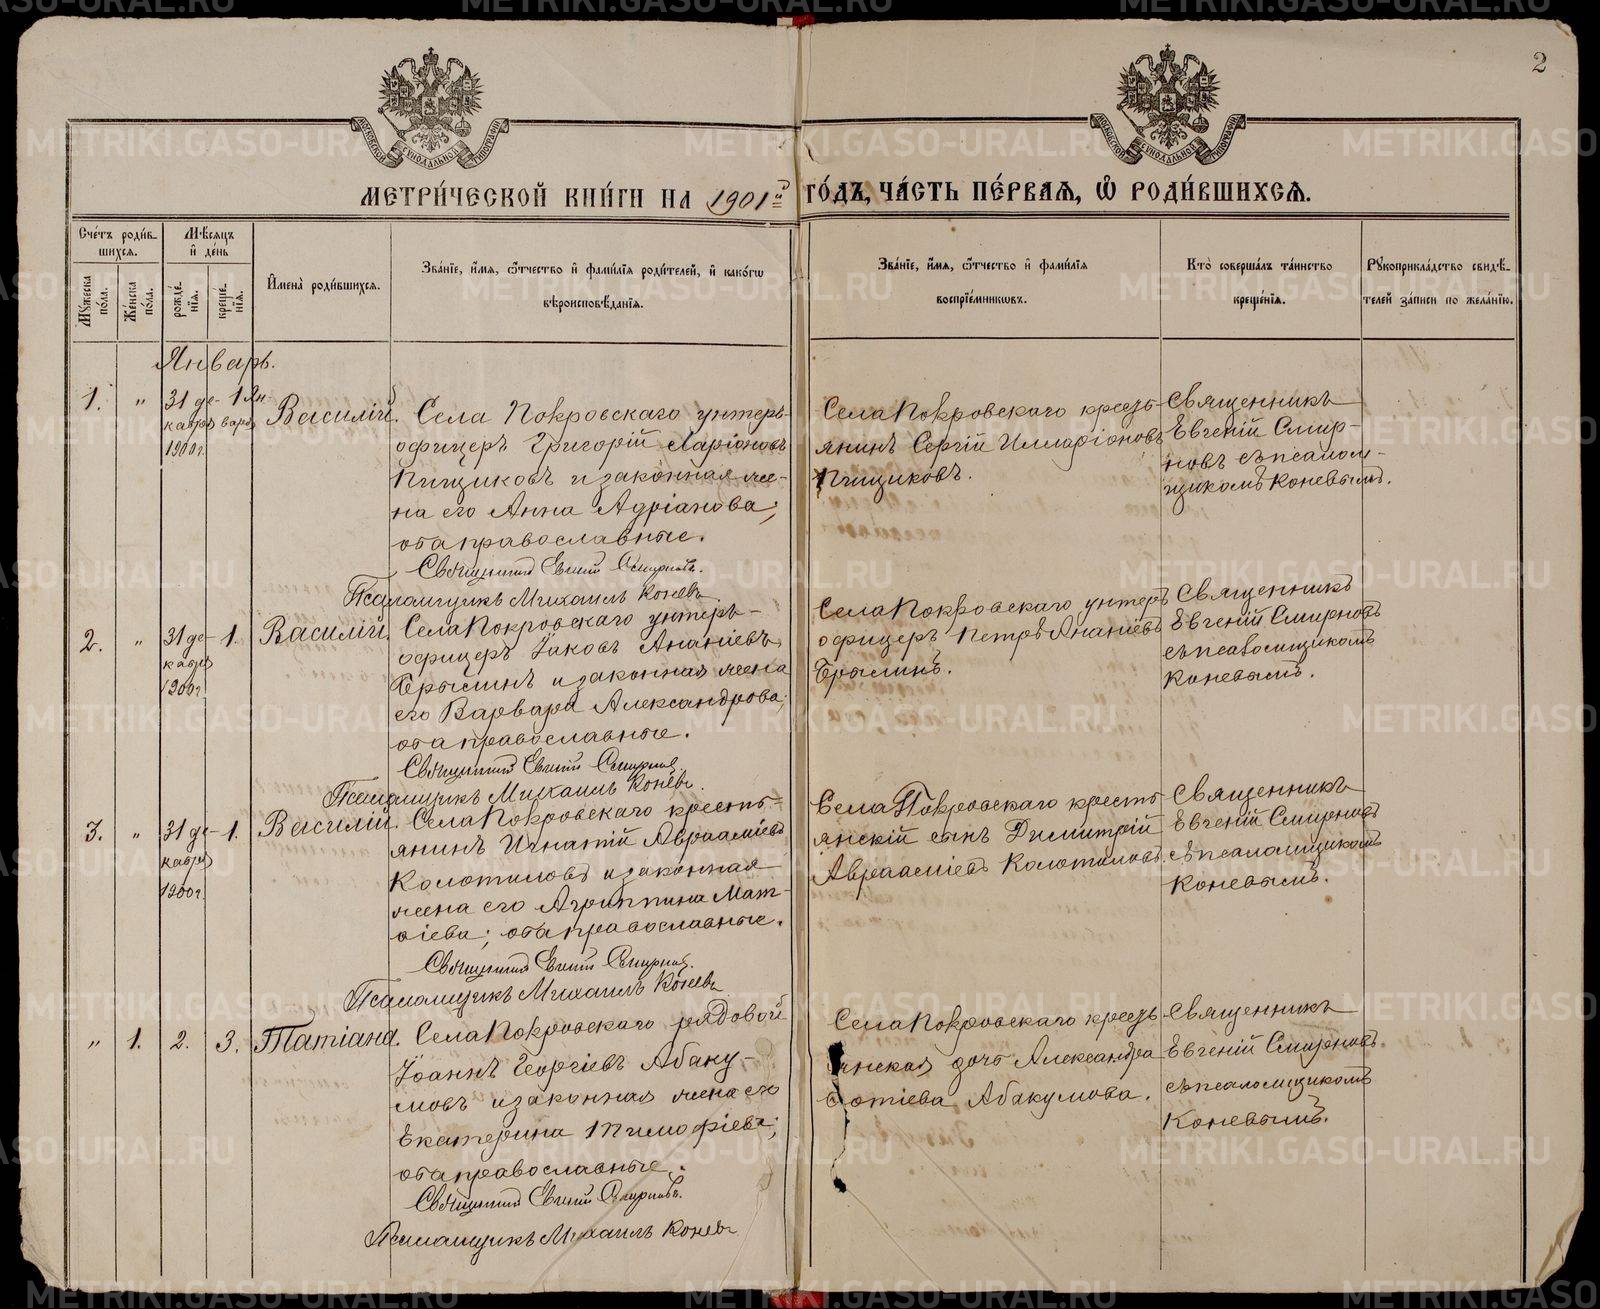 2
МЕТРИ́ЧЕСКОЙ КНИ́ГИ НА 1901й ГО́ДЪ, ЧА́СТЬ ПЕ́РВАЯ, Ѽ РОДИ́ВШИХСЯ.
Сче́тъ роди́в-
шихся.
Мѣ́сяцъ
и҆ де́нь
Мꙋ́жеска
по́ла.
Же́нска
по́ла.
рожде́-
нїя.
креще́-
нїя.
И҆мена̀ роди́вшихся.
Зва́нїе, и҆́мя, ѻ҆́тчество и҆ фами́лїя роди́телей, и҆ како́гѡ
вѣроисповѣ́данїя.
Зва́нїе, и҆́мя, ѻ҆́тчество и҆ фами́лїя
воспрїе́мникѡвъ.
Кто̀ соверша́лъ та́инство
креще́нїя.
Рꙋкоприкла́дство свидѣ́-
телей за́писи по жела́нїю.
Январь.
1.
"
31 де-
кабря
1900г.
1 Ян-
варя
Василій.
Села Покровскаго унтеръ-
офицеръ Григорій Ларіоновъ
Пищиковъ и законная же-
на его Анна Адріанова;
оба православные.
Священникъ Евгеній Смирновъ.
Псаломщикъ Михаилъ Коневъ
Села Покровскаго кресть-
янинъ Сергій Илларіоновъ
Пищиковъ.
Священникъ
Евгеній Смир-
новъ съ псалом-
щикомъ Коневымъ.
2.
"
31 де-
кабря
1900г.
1.
Василій.
Села Покровскаго унтеръ-
офицеръ Іаковъ Ананіевъ
Брылинъ и законная жена
его Варвара Александрова;
оба православные.
Священникъ Евгеній Смирновъ
Псаломщикъ Михаилъ Коневъ.
Села Покровскаго унтеръ
офицеръ Петръ Ананіевъ
Брылинъ.
Священникъ
Евгеній Смирновъ
съ псаломщикомъ
Коневымъ.
3.
"
31 де-
кабря
1900г.
1.
Василій.
Села Покровскаго кресть-
янинъ Игнатій Авраамiевъ
Колотиловъ и законная
жена его Агриппина Мат-
ѳіева; оба православные.
Священникъ Евгеній Смирновъ.
Псаломщикъ Михаилъ Коневъ
Села Покровскаго кресть-
янскій сынъ Димитрій
Авраамiевъ Колотиловъ.
Священникъ
Евгеній Смирновъ
съ псаломщикомъ
Коневымъ.
"
1.
2.
3.
Татіана.
Села Покровскаго рядовой
Іоаннъ Георгіевъ Абаку-
мовъ и законная жена его
Екатерина Тимофіева;
оба православные.
Священникъ Евгеній Смирновъ.
Псаломщикъ Михаилъ Коневъ
Села Покровскаго кресть-
янская дочь Александра
Фотіева Абакумова.
Священникъ
Евгеній Смирновъ
съ псаломщикомъ
Коневымъ.
METRIKI.GASO-URAL.RU